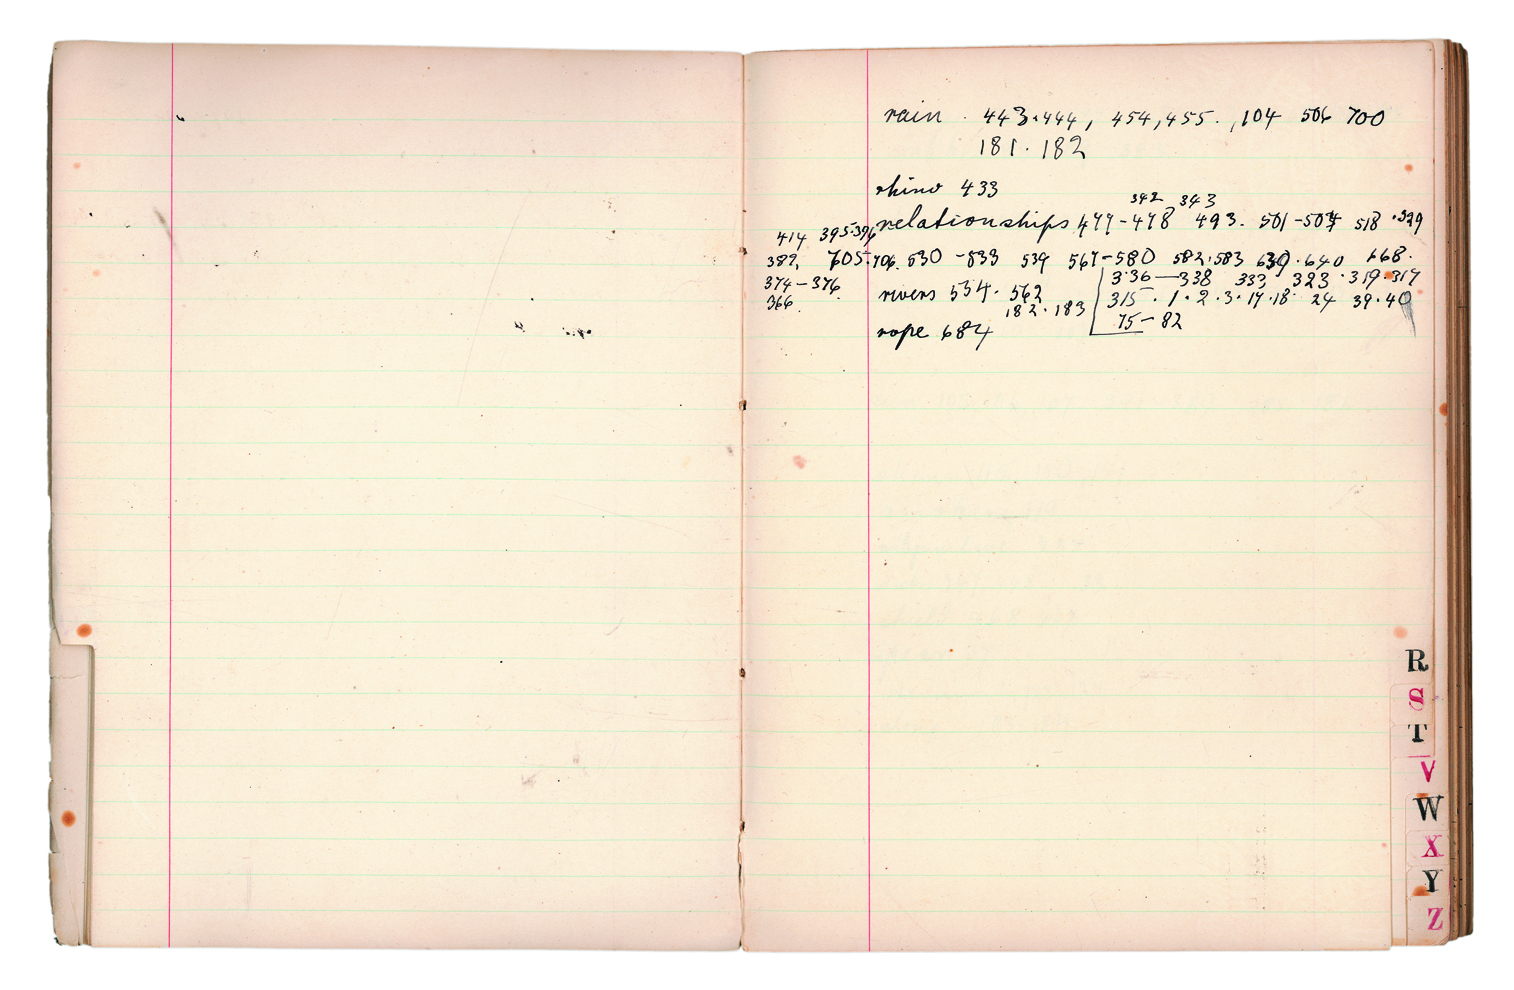 rain . 443.444, 454,455. ,104 506 700
181. 182
rhino 433
342 343
relationships 477-478 493. 501-504 518 .329
414 395.396
382, 705.706. 530 -533 539 567-580 582.583 639.640 668.
374-376 336-338 333 323 .319.317
366. rivers 534. 562 315. 1.2.3.17.18. 24 39.40
182.183 75-82
rope 684
R
S
T
V
W
X
Y
Z